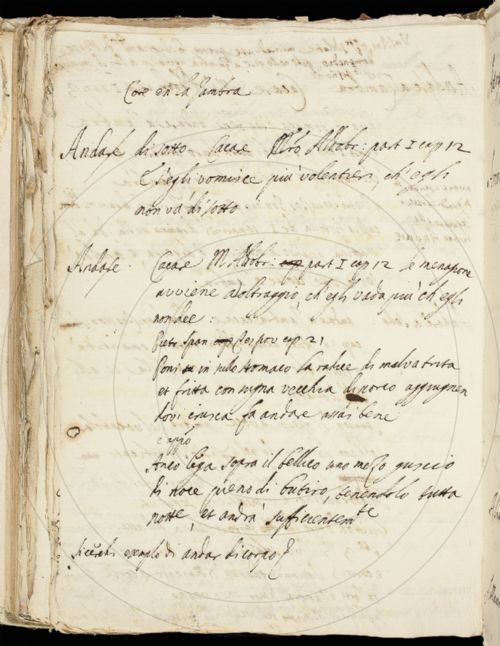 Core en la Zambra
Andare di sotto Cacare Mro Aldobr: part I cap 12
E s'egli vomisce più volentieri, ch'egli
non va di sotto.
Andare. Cacare M Aldobr: part I cap 12 se menagione
avviene adoltraggio, ch'egli vada più ch'egli
non dee:
Pietr Span cap 21
Poni in su lo stomaco la radice di malva trita
et fritta con sugna vecchia di porco aggiugnen
dovi crusca fa andare assai bene
e appo
Anco lega sopra il bellico uno mezo guscio
di noce pieno di butiro, tenendolo tutta
notte, et andrà sufficientemte
si cerchi exemplo di andar di corpo